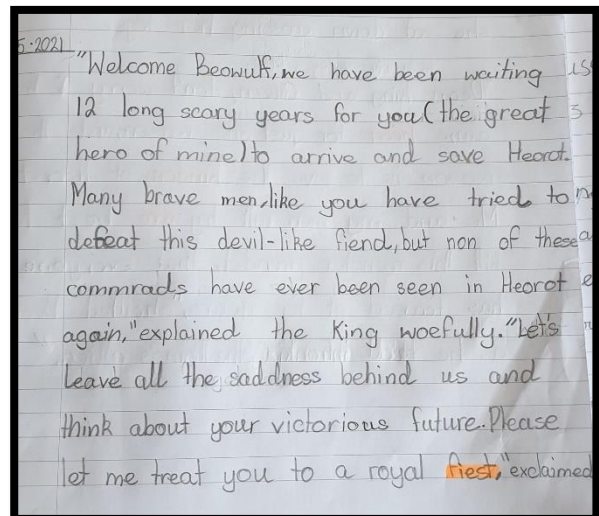 5.2021
"Welcome Beowulf, we have been waiting
12 long scary years for you (the great
hero of mine) to arrive and save Heorot.
Many brave men, like you have tried to
defeat this devil-like fiend, but non of these
commrads have ever been seen in Heorot
again," explained the King woefully. "Let's
Leave all the saddness behind us and
think about your victorious future. Please
let me treat you to a royal fiest," exclaimed